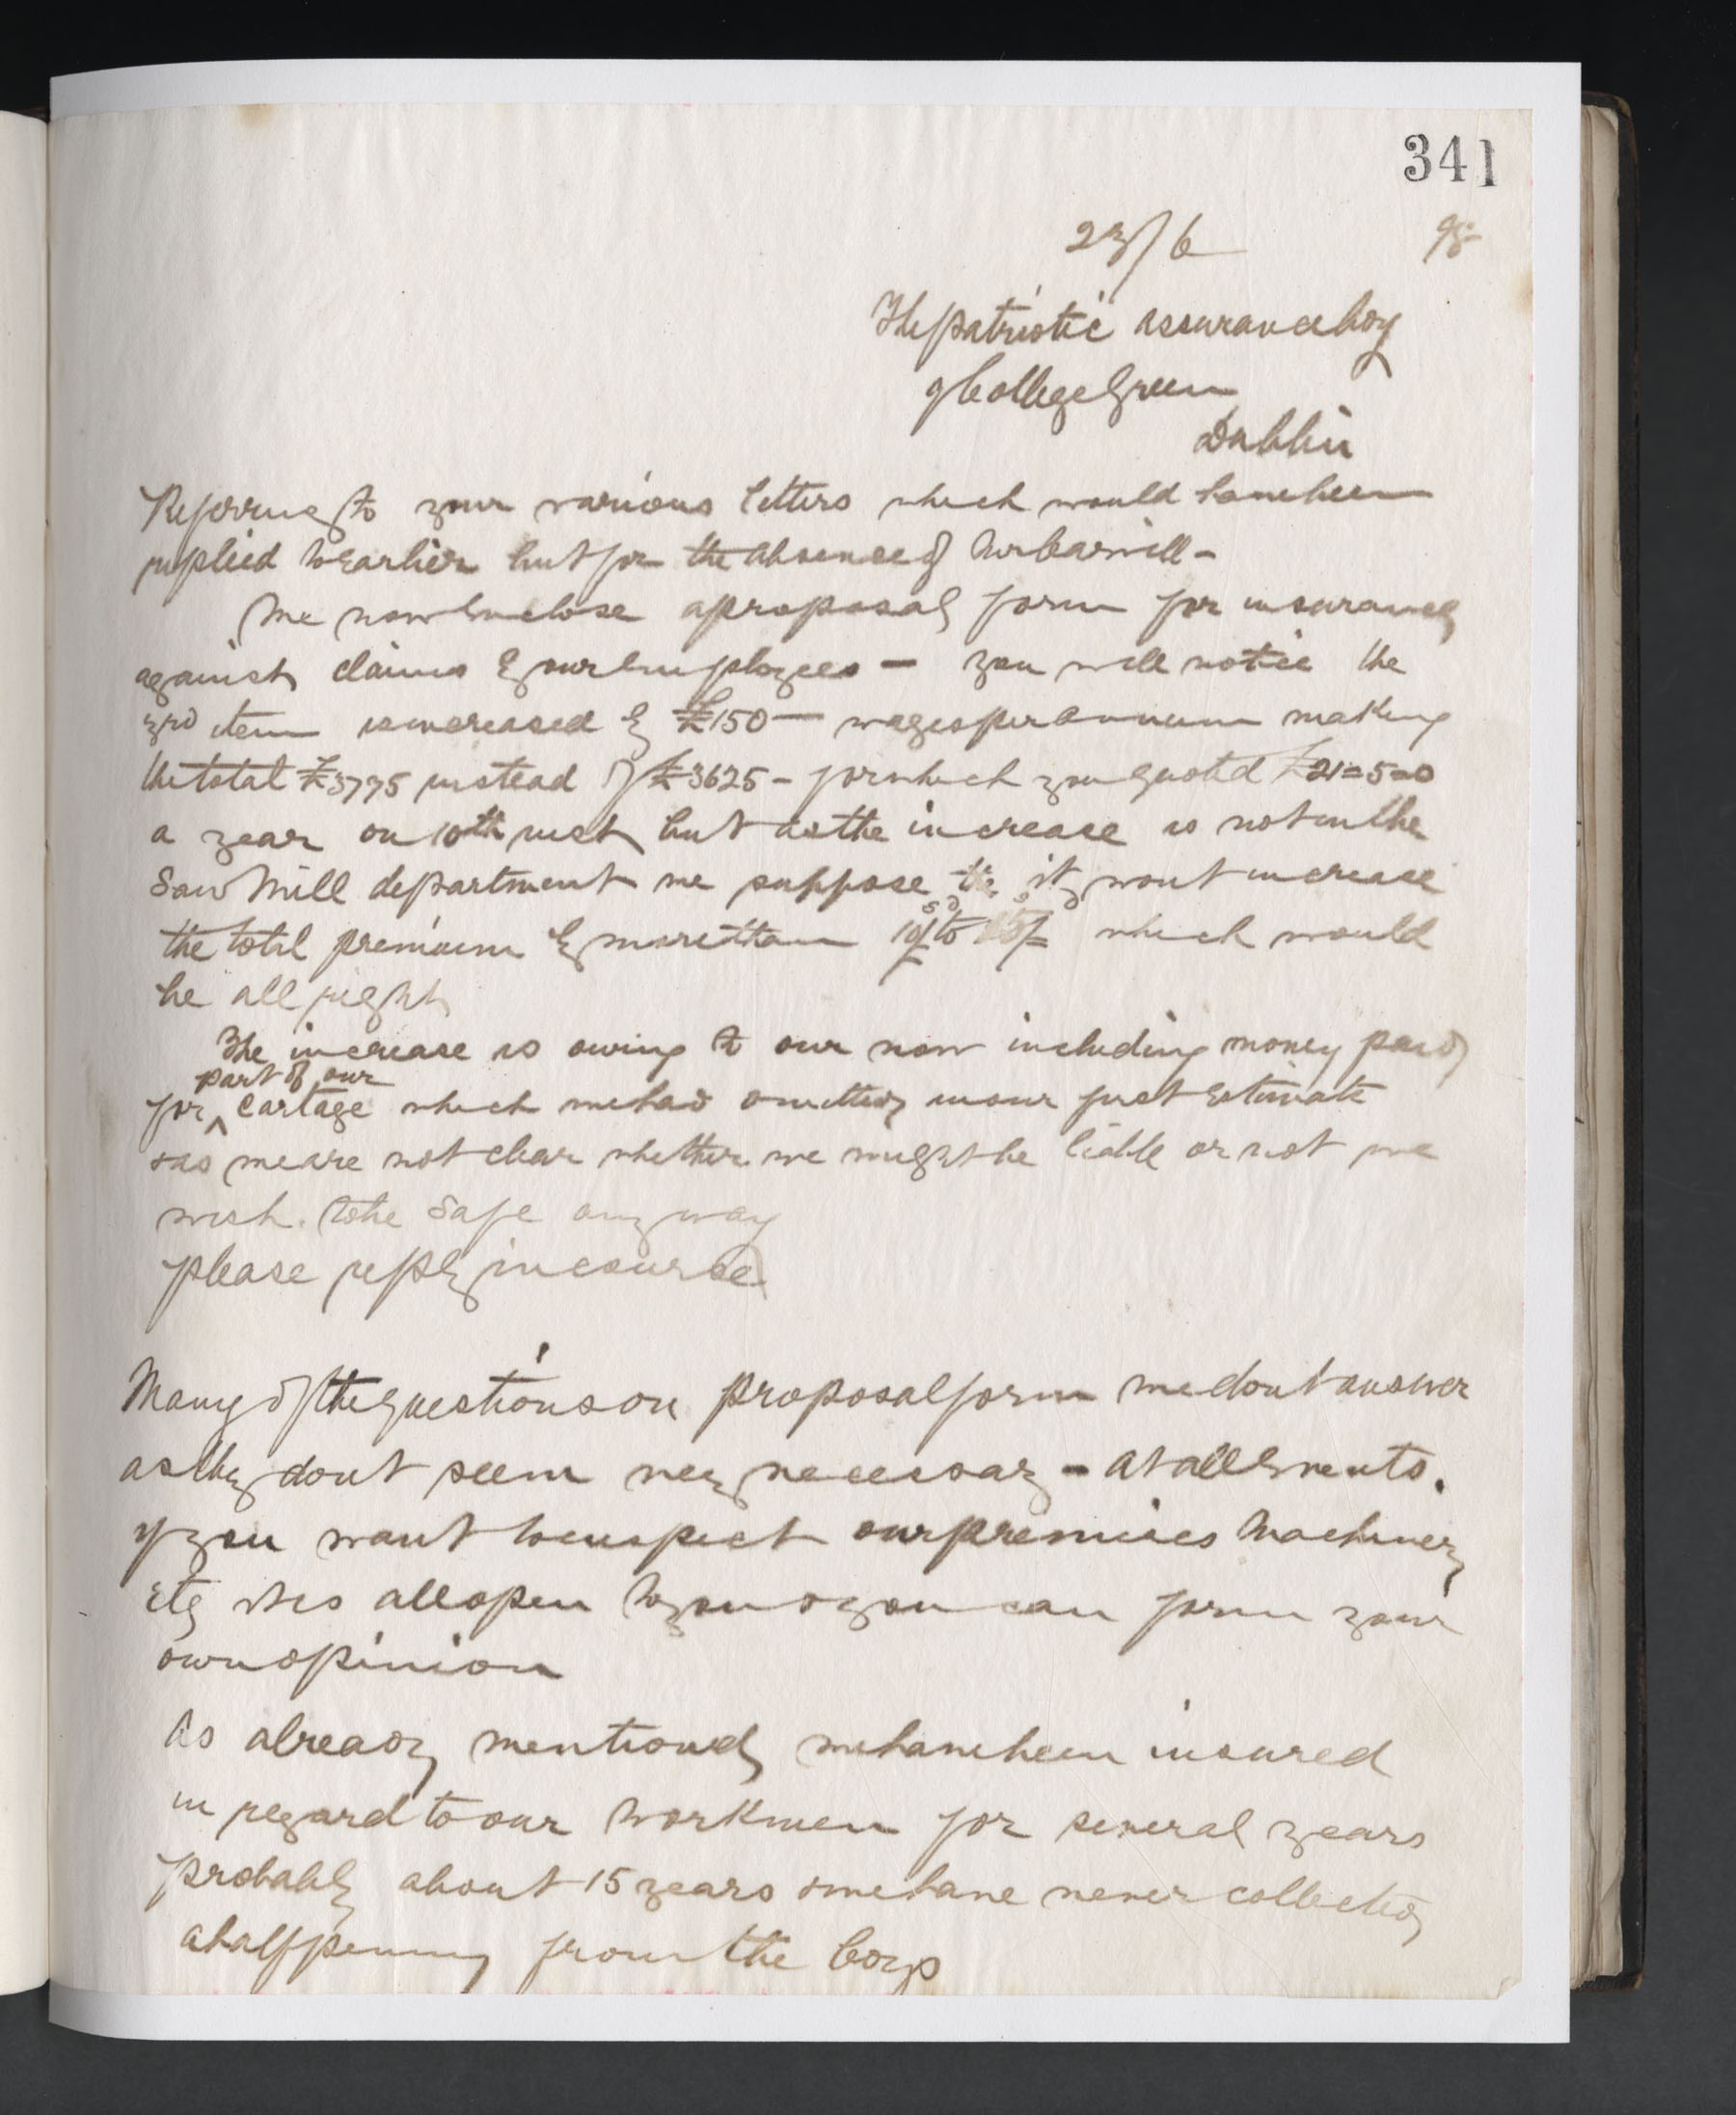 341
23/6 98
The patriotic assurance Coy
9 College Green
Dublin
Referring to your various letters which would have been
replied to Earlier but for the absence of Mr Carvill -
We now Enclose a proposal form for insurance
against claims by our Employees - you will notice the
3rd item is increased by £150 - wages per annum making
the total £3775 instead of £3625 - for which you quoted £21=5=0
a year on 10th inst but as the increase is not in the
Saw Mill department we suppose it wont increase
the total premium by more than 10/ to 15/= which would
be all right
The increase is owing to our now including money paid
for part of our cartage which we had omitted in our first Estimate
& as we are not clear whether we might be liable or not we
wish to be safe any way
please reply in course
Many of the questions on proposal form we dont answer
as they dont seem very necessary - at all Events.
if you want to inspect our premises Machinery
etc it is all open to you & you can form your
own opinion
As already mentioned we have been insured
in regard to our Workmen for several years
probably about 15 years & we have never collected
a halfpenny from the Coys